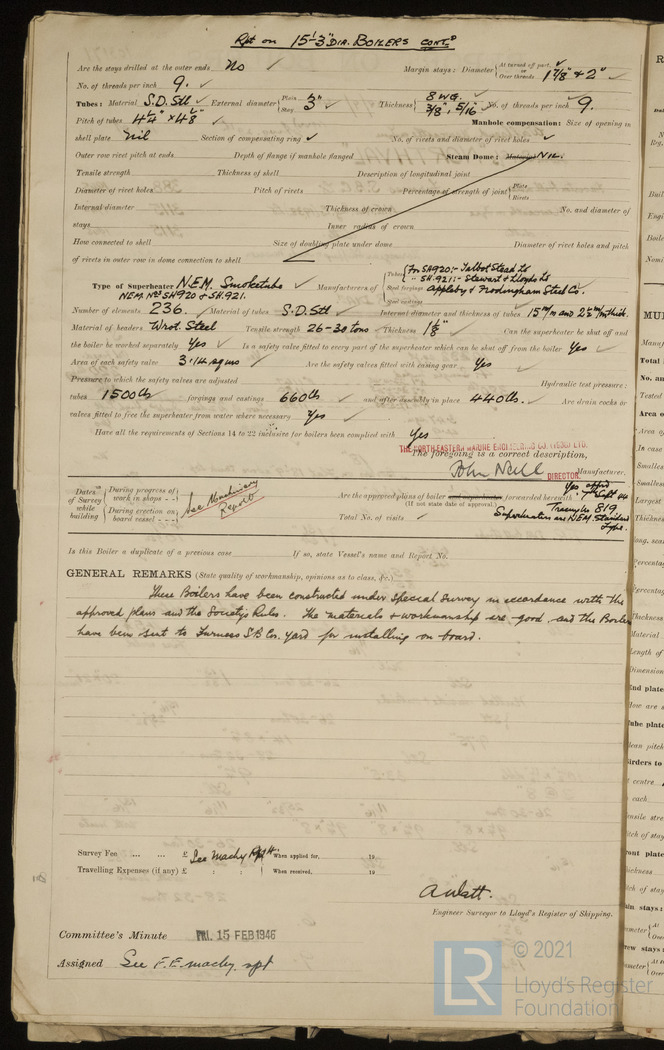 Rpt on 15'-3" DIA. BOILERS CONTD
Are the stays drilled at the outer ends No ✓ Margin stays: Diameter { At turned off part, or Over threads 1 7/8" & 2" ✓
No. of threads per inch 9. ✓
Tubes: Material S.D. Stl ✓ External diameter { Plain Stay 3" ✓ Thickness { 8 WG. ✓ 3/8", 5/16" No. of threads per inch 9.
Pitch of tubes 4 1/4" × 4 1/8" ✓ Manhole compensation: Size of opening in
shell plate Nil Section of compensating ring ✓ No. of rivets and diameter of rivet holes ✓
Outer row rivet pitch at ends Depth of flange if manhole flanged Steam Dome: Material Nil.
Tensile strength Thickness of shell Description of longitudinal joint
Diameter of rivet holes Pitch of rivets Percentage of strength of joint { Plate Rivets
Internal diameter Thickness of crown No. and diameter of
stays Inner radius of crown
How connected to shell Size of doubling plate under dome Diameter of rivet holes and pitch
of rivets in outer row in dome connection to shell
Type of Superheater N.E.M. Smoketube ✓ Manufacturers of { Tubes For SH920:- Talbot Stead Ld
" SH.921:- Stewart & Lloyds Ld
NEM Nos SH920 & SH.921. Steel forgings Appleby & Frodingham Steel Co.
Steel castings
Number of elements 236. ✓ Material of tubes S.D. Stl ✓ Internal diameter and thickness of tubes 15 m/m and 2½ m/m thick.
Material of headers Wrot. Steel Tensile strength 26-30 tons ✓ Thickness 1 1/8" ✓ Can the superheater be shut off and
the boiler be worked separately Yes ✓ Is a safety valve fitted to every part of the superheater which can be shut off from the boiler Yes ✓
Area of each safety valve 3.14 sq ins ✓ Are the safety valves fitted with easing gear Yes ✓
Pressure to which the safety valves are adjusted Hydraulic test pressure:
tubes 1500 lbs forgings and castings 660 lbs ✓ and after assembly in place 440 lbs. ✓ Are drain cocks or
valves fitted to free the superheater from water where necessary Yes ✓
Have all the requirements of Sections 14 to 22 inclusive for boilers been complied with Yes
THE NORTH EASTERN MARINE ENGINEERING CO. (1938) LTD.
The foregoing is a correct description,
John Neill DIRECTOR. Manufacturer.
Dates of Survey while building { During progress of work in shops - - } See Machinery
During erection on board vessel - - - } Report
Are the approved plans of boiler and superheater forwarded herewith Yes appd 7 Sept 44
(If not state date of approval.)
Total No. of visits ✓
Superheaters are NEM. Standard
Type.
Is this Boiler a duplicate of a previous case If so, state Vessel's name and Report No.
GENERAL REMARKS (State quality of workmanship, opinions as to class, &c.)
These Boilers have been constructed under Special Survey in accordance with the
approved plans and the Society's Rules. The materials & workmanship are good and the Boilers
have been sent to Furness S.B Co. yard for installing on board.
Survey Fee ... ... £ See Machy Rpt { When applied for, 19
Travelling Expenses (if any) £ : : { When received, 19
A Watt.
Engineer Surveyor to Lloyd's Register of Shipping.
Committee's Minute FRI. 15 FEB 1946
Assigned See F.E. machy. rpt
© 2021
LR Lloyd's Register
Foundation